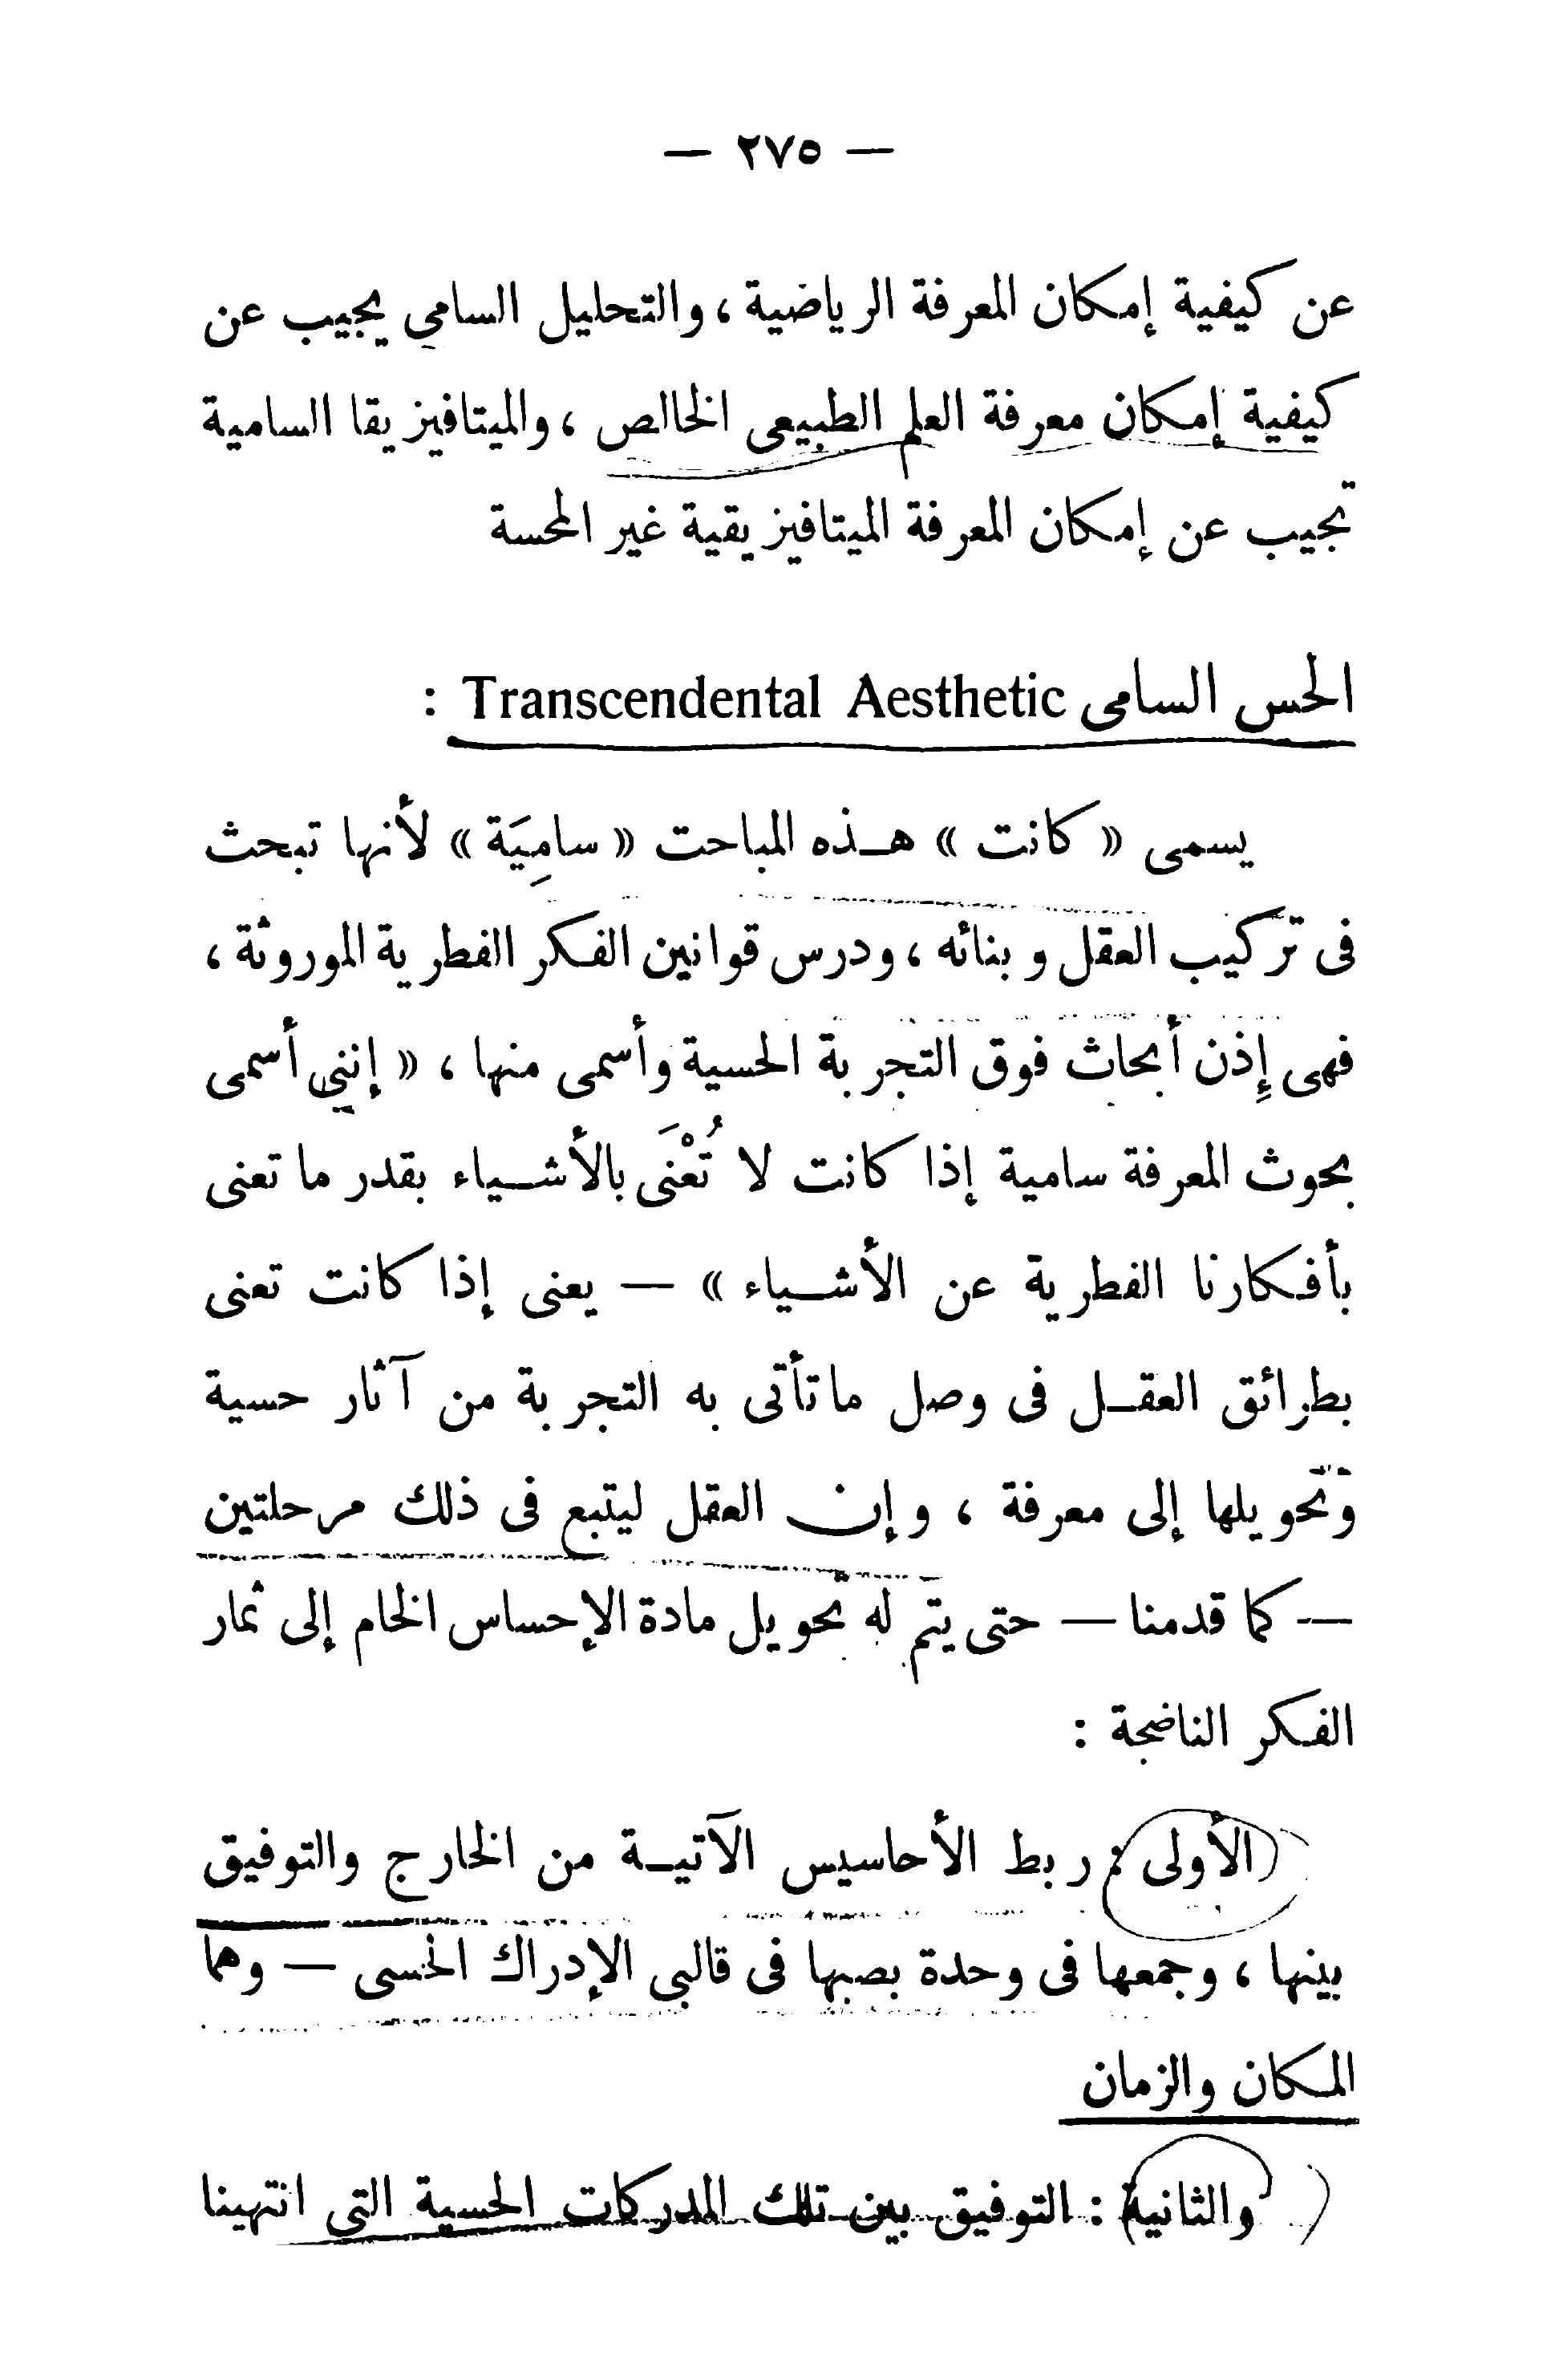 — ٢٧٥ —
عن كيفية إمكان المعرفة الرياضية ، والتحليل السامى يجيب عن
كيفية إمكان معرفة العلم الطبيعى الخالص ، والميتافيزيقا السامية
تجيب عن إمكان المعرفة الميتافيزيقية غير المحسة
الحس السامى Transcendental Aesthetic :
يسمى « كانت » هـذه المباحت « سامِيَة » لأنها تبحث
فى تركيب العقل وبنائه ، ودرس قوانين الفكر الفطرية الموروثة ،
فهى إِذن أبحاث فوق التجربة الحسية وأسمى منها ، « إننى أسمى
بحوث المعرفة سامية إذا كانت لا تُعْنَى بالأشـياء بقدر ما تعنى
بأفكارنا الفطرية عن الأشـياء » — يعنى إذا كانت تعنى
بطرائق العقـل فى وصل ما تأتى به التجربة من آثار حسية
وتحويلها إلى معرفة ، وإن العقل ليتبع فى ذلك مرحلتين
— كما قدمنا — حتى يتم له تحويل مادة الإحساس الخام إلى ثمار
الفكر الناضجة :
الأولى : ربط الأحاسيس الآتيـة من الخارج والتوفيق
بينها ، وجمعها فى وحدة بصبها فى قالبى الإدراك الحسى — وهما
المكان والزمان
والثانية : التوفيق بين تلك المدركات الحسية التى انتهينا